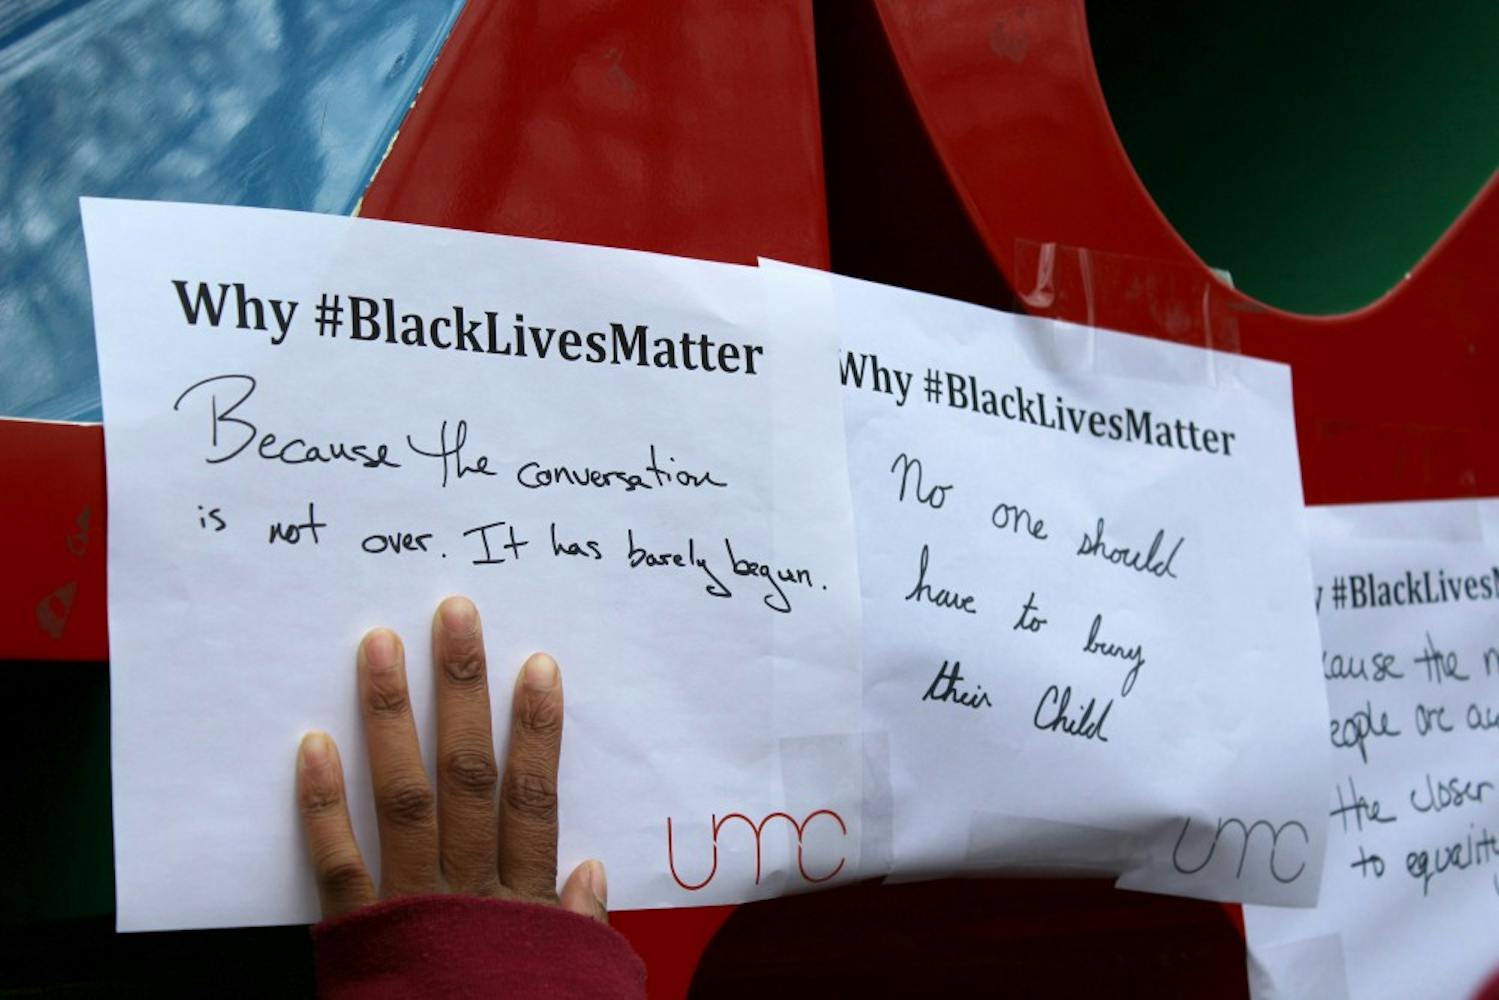 Why #BlackLivesMatter
Because the conversation
is not over. It has barely begun.
umc
Why #BlackLivesMatter
No one should
have to bury
their Child
umc
#BlackLives
the
people are
the closer
to equality